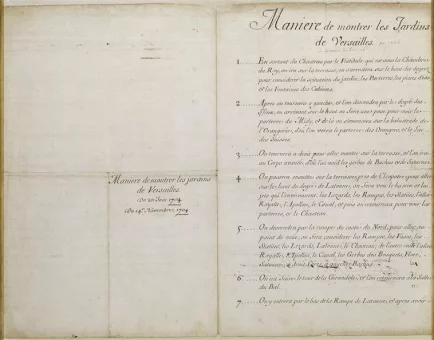 Maniere de montrer les jardins
de Versailles.
Du 20 Juin 1704
Du 14e Novembre 1704
Maniere de montrer les Jardins
de Versailles.
1. En sortant du Chasteau par le Vestibule qui est sous la Chambre
du Roy, on ira sur la terrasse, on s'arrestera sur le haut des degrez
pour considerer la situation du jardin, les Parterres, les pieces d'eau,
et les Fontaines des Cabinets.
2. Apres on tournera a gauche, et l'on descendra par le degré des
on arrestant sur le haut on fera une pause pour voir le
parterre du Midy, et de là on s'en ira sur la balustrade de
l'Orangerie, d'où l'on verra le parterre des Orangers, et le lac
des Suisses.
3. On tournera a droit pour aller monter sur la terrasse, et l'on ira
au Corps avancé, d'où l'on voit les gerbes de Bachus et de Saturne.
4. On passera ensuitte sur la terrasse, près de Cleopatre pour aller
sur le haut du degré de Latonne, on fera voir le
les Rampes, les Lezards, les Statues, l'allée
Royalle, l'Apollon, le Canal, et puis on retournera pour voir les
parterres, et le Chasteau.
5. On descendra par la rampe du costé du Nord, pour aller au
point de veüe, on fera considerer les Rampes, les Vases, les
Statues, les Lezards, Latonne, le Chasteau; de l'autre costé l'allée
Royalle, l'Apollon, le Canal, les Gerbes des Bosquets, Flore,
Saturne,
6. On ira faire le tour de la Girandole, et l'on
du Bal.
7. On y entrera par le bas de la Rampe de Latonne, et apres avoir